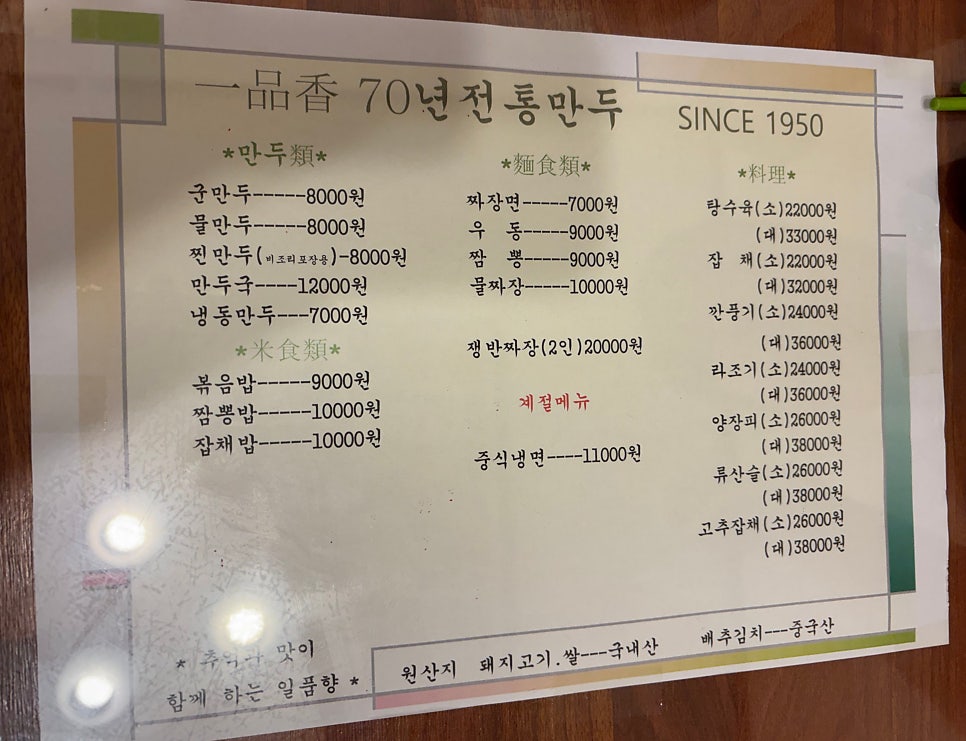 一品香 70년전통만두
SINCE 1950
*만두類*
군만두-----8000원
물만두-----8000원
찐만두(비조리포장용)-8000원
만두국----12000원
냉동만두---7000원
*米食類*
볶음밥-----9000원
짬뽕밥-----10000원
잡채밥-----10000원
*麵食類*
짜장면-----7000원
우 동-----9000원
짬 뽕-----9000원
물짜장-----10000원
쟁반짜장(2인)20000원
계절메뉴
중식냉면----11000원
*料理*
탕수육(소)22000원
(대)33000원
잡 채(소)22000원
(대)32000원
깐풍기(소)24000원
(대)36000원
라조기(소)24000원
(대)36000원
양장피(소)26000원
(대)38000원
류산슬(소)26000원
(대)38000원
고추잡채(소)26000원
(대)38000원
* 추억과 맛이
함께 하는 일품향 *
원산지 돼지고기.쌀---국내산 배추김치---중국산